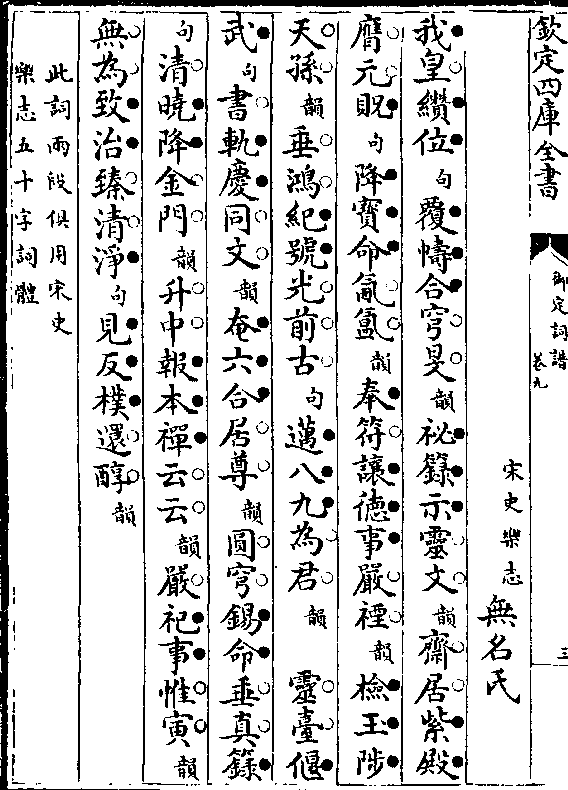 欽定四庫全書
御定詞譜
卷九
三
宋史樂志
無名氏
我皇纘位句覆幬合穹旻韻祕籙示靈文韻齋居紫殿
膺元貺句降寶命氤氳韻奉符讓徳事嚴禋韻檢玉陟
天孫韻垂鴻紀號光前古句邁八九為君韻靈臺偃
武句書軌慶同文韻奄六合居尊韻圓穹錫命垂真籙
句清曉降金門韻升中報本禪云云韻嚴祀事惟寅韻
無為致治臻清淨句見反樸還醇韻
此詞兩段俱用宋史
樂志五十字詞體